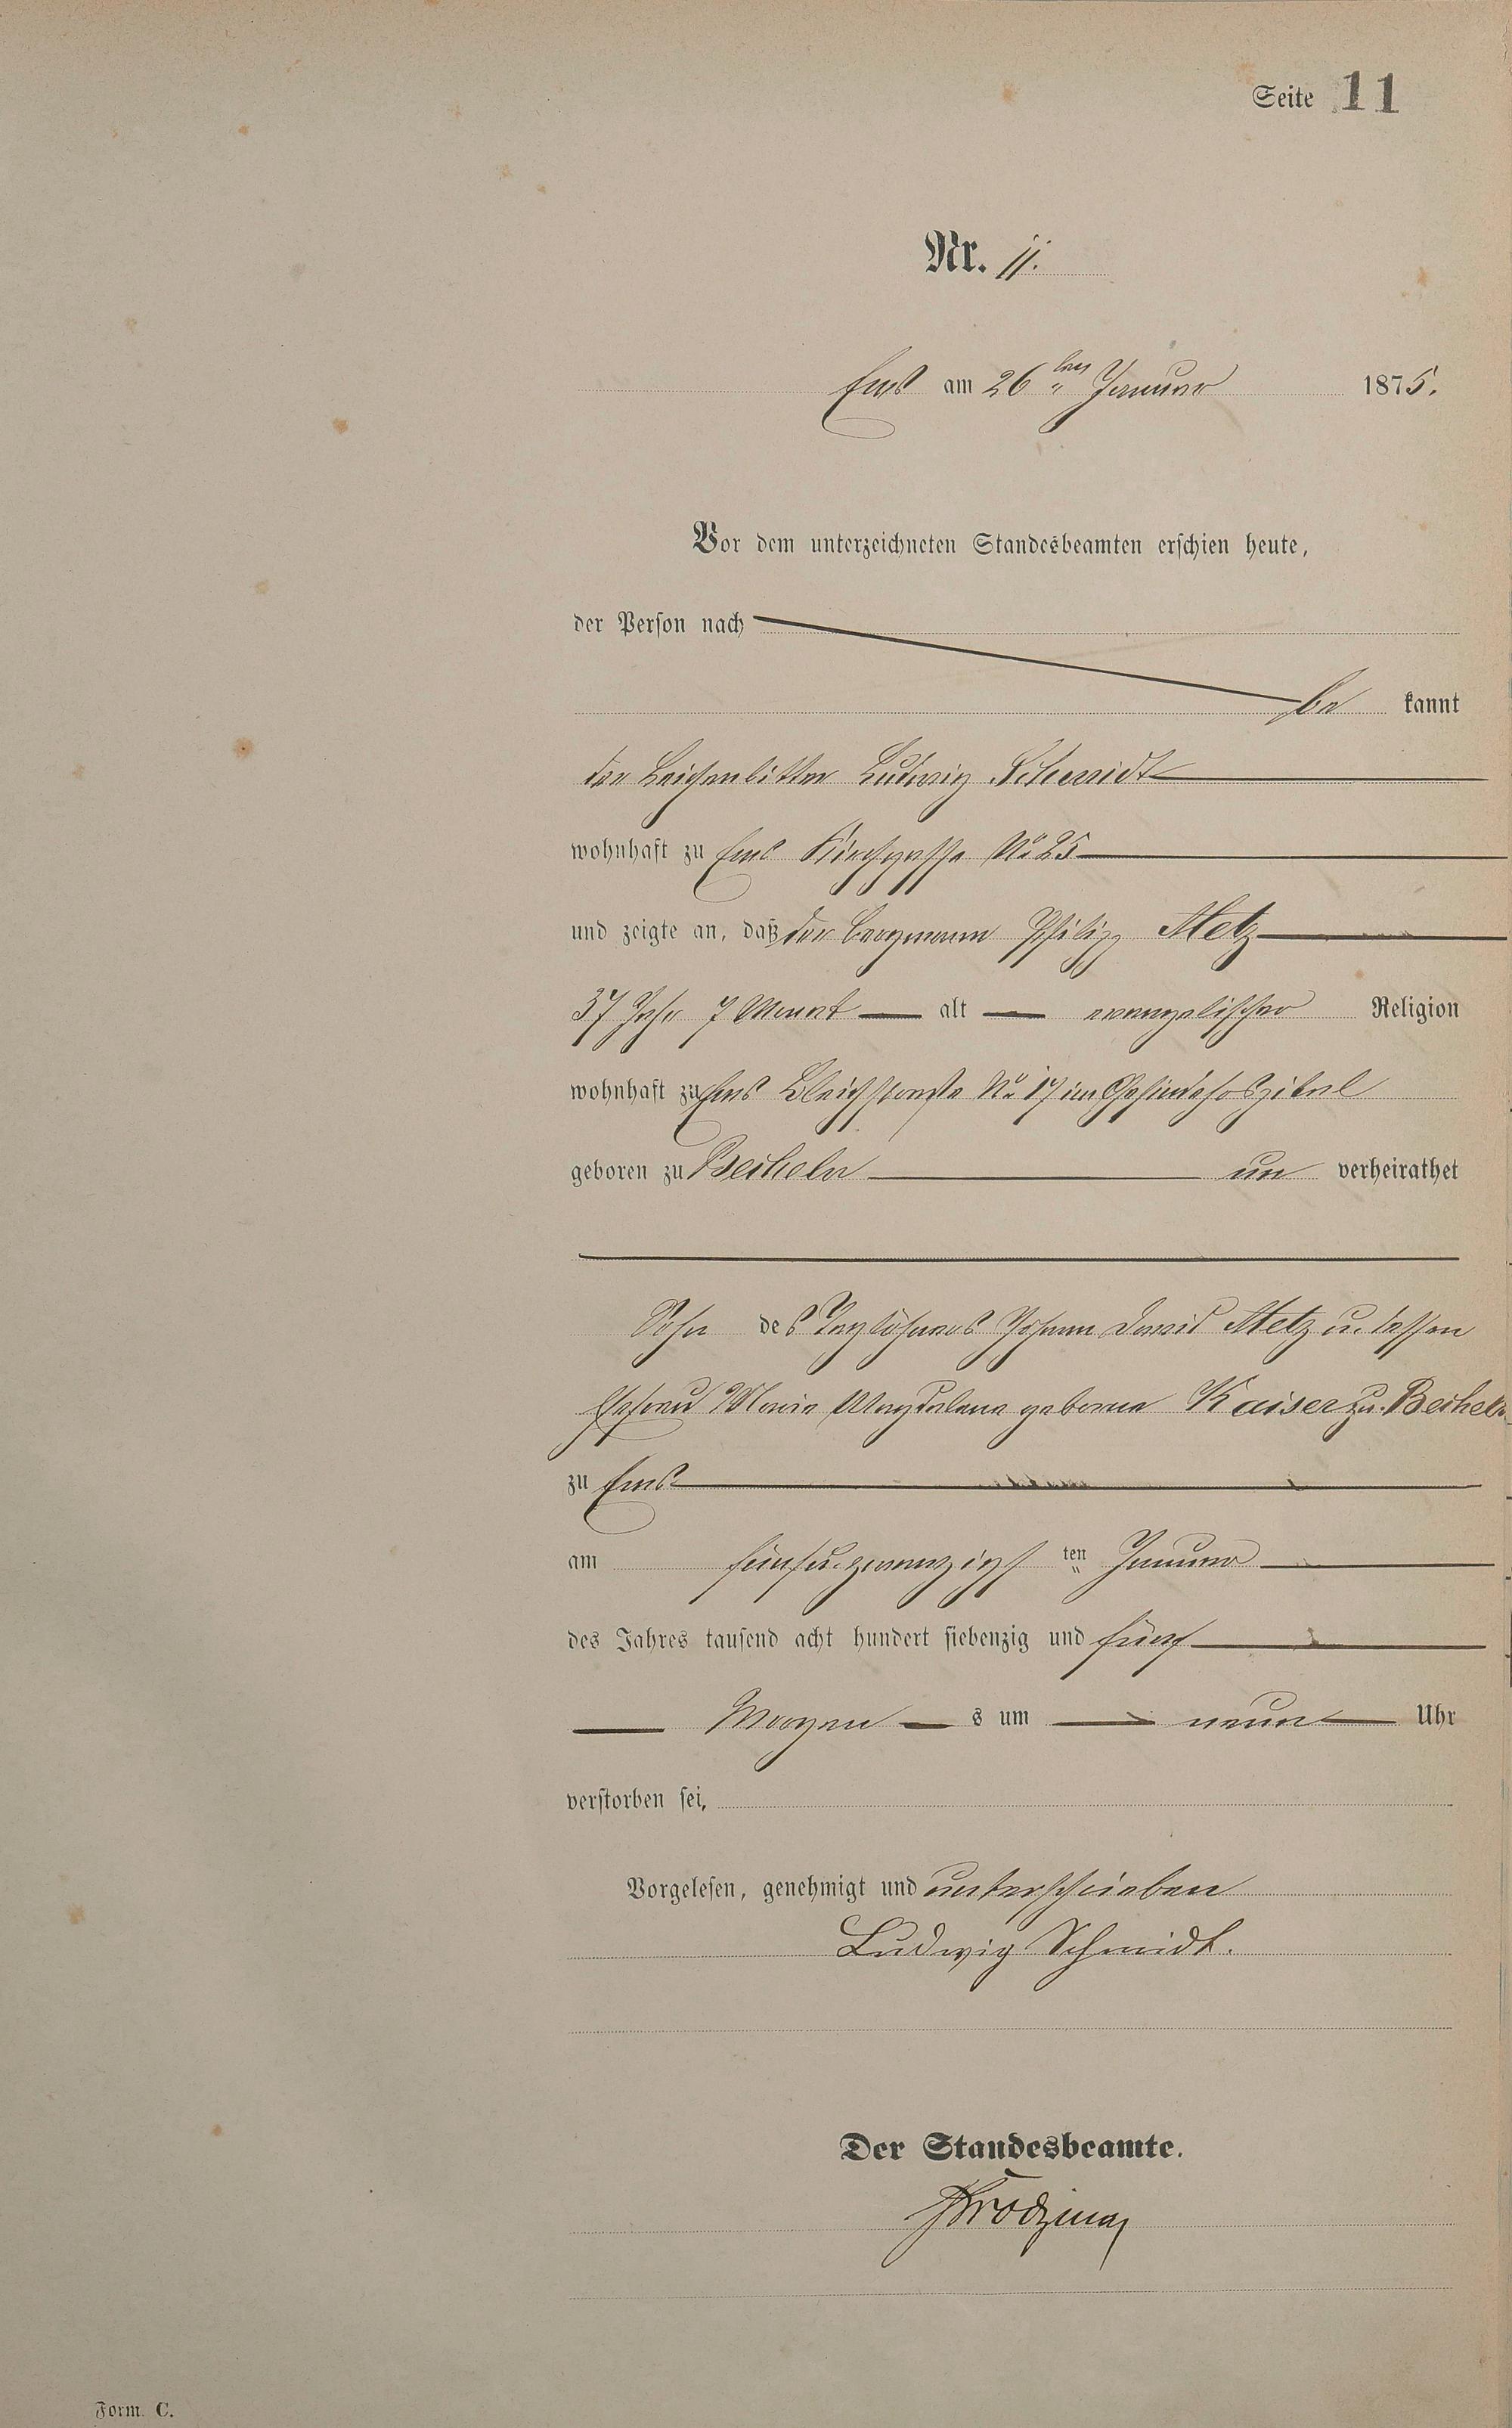 Seite 11
Nr. 11.
Ems am 26ten Januar 1875.
Vor dem unterzeichneten Standesbeamten erschien heute,
der Person nach
be kannt
der Leichenbitter Ludwig Schmidt
wohnhaft zu Ems Kirchgasse No 25
und zeigte an, daß der Bergmann Philipp Metz
37 Jahr 7 Monat alt evangelischer Religion
wohnhaft zu Ems Bleichstraße No 17 im Gesindehospital
geboren zu Becheln un verheirathet
Sohn des Taglöhners Johann David Metz u. dessen
Ehefrau Maria Magdalena geborne Kaiser zu Becheln
zu Ems
am fünfu.zwanzigsten Januar
des Jahres tausend acht hundert siebenzig und fünf
Morgen s um neun Uhr
verstorben sei.
Vorgelesen, genehmigt und unterschrieben
Ludwig Schmidt.
Der Standesbeamte.
Form. C.